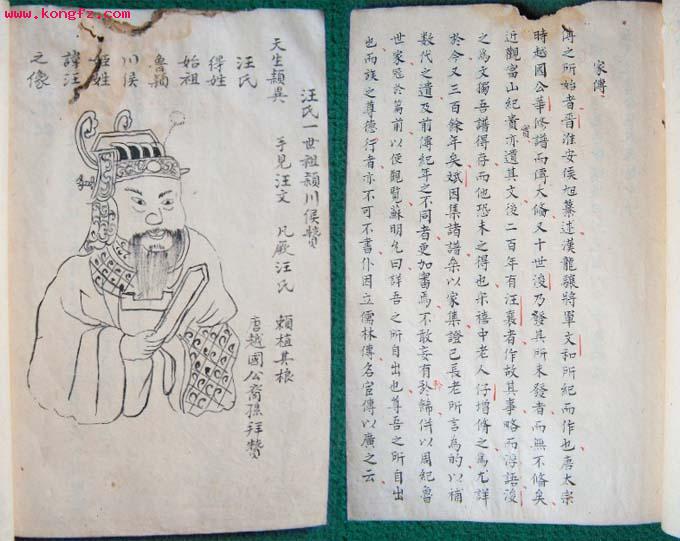 www.kongfz.com
家傳
傳之所始者晉淮安侯旭纂述漢龍驤將軍文和所紀而作也唐太宗
時越國公華修譜而傳大俻又十世浚乃發其所未發者而無不俻矣
近觀富山紀賁亦遺其文後二百年有汪襄者作故其事略而得語浚
之為文獨吾譜得存而他恐未之得也宋禧中老人仔增脩之為尤詳
於今又三百餘年矣斌因集諸譜叅以家集證已長老所言為的以補
數代之遺及前傳紀年之不同者更加書焉不敢妄有餙倂以周紀魯
世家冠於篇前以便觀覽蘇明允曰詳吾之所自出也尊吾之所自出
也而族之尊德行者亦不可不書仆因立儒林傳名宦傳以廣之云
汪氏一世祖潁川侯贊
天生頴異 手見汪文 凡厥汪氏 賴植其根
唐越國公裔孫拜贊
汪氏
得姓
始祖
魯潁
川侯
姬姓
諱汪
之像
www.kongfz.com